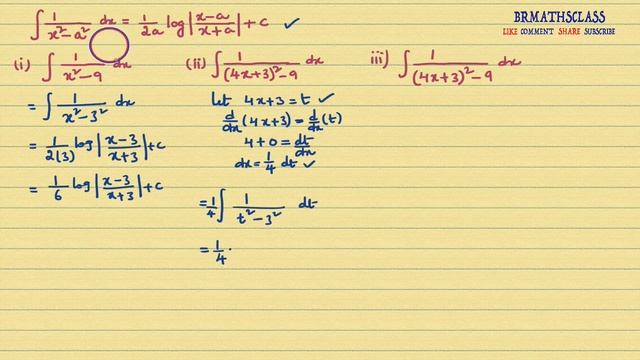 ∫ 1/(x²-a²) dx = 1/2a log |x-a/x+a| + c ✓
BRMATHSCLASS
LIKE COMMENT SHARE SUBSCRIBE
(i) ∫ 1/(x²-9) dx
= ∫ 1/(x²-3²) dx
= 1/2(3) log |x-3/x+3| + c
= 1/6 log |x-3/x+3| + c
(ii) ∫ 1/((4x+3)²-9) dx
let 4x+3 = t ✓
d/dx (4x+3) = d/dx (t)
4+0 = dt/dx
dx = 1/4 dt ✓
= 1/4 ∫ 1/(t²-3²) dt
= 1/4 ·
iii) ∫ 1/((4x+3)²-9) dx